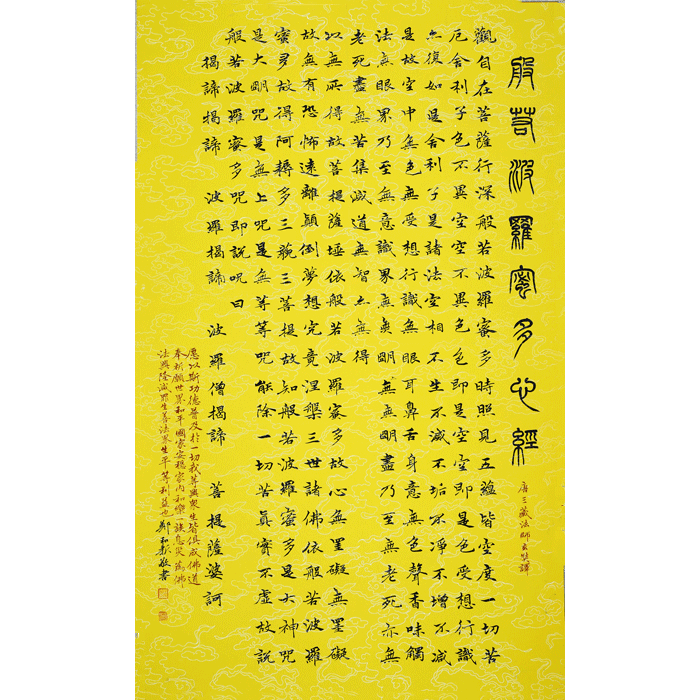 般若波羅蜜多心經
唐三藏法師玄奘譯
觀自在菩薩行深般若波羅蜜多時照見五蘊皆空度一切苦
厄舍利子色不異空空不異色色即是空空即是色受想行識
亦復如是舍利子是諸法空相不生不滅不垢不淨不增不減
是故空中無色無受想行識無眼耳鼻舌身意無色聲香味觸
法無眼界乃至無意識界無無明無無明盡乃至無老死亦無
老死盡無苦集滅道無智亦無得
以無所得故菩提薩埵依般若波羅蜜多故心無罣礙無罣礙
故無有恐怖遠離顛倒夢想究竟涅槃三世諸佛依般若波羅
蜜多故得阿耨多三藐三菩提故知般若波羅蜜多是大神咒
是大明咒是無上咒是無等等咒能除一切苦真實不虛故說
般若波羅蜜多咒即說咒曰
揭諦揭諦 波羅揭諦 波羅僧揭諦 菩提薩婆訶
愿以斯功德普及於一切我等與眾生皆俱成佛道
奉祈願世界和平國家安穩家內和樂族息災為佛
法興隆滅罪生善法界生平等利益也 鄭和 敬書